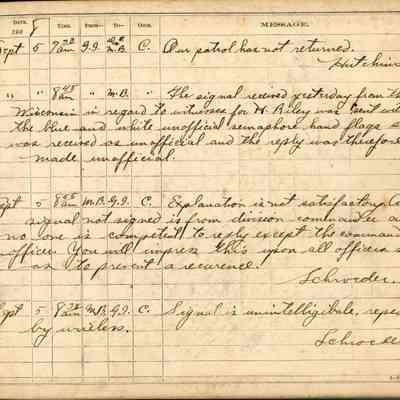 DATE. TIME. FROM— TO— CODE. MESSAGE.
190 8
Sept 5 7 22 am G.I. M.B. C. Our patrol has not returned.
Hutchins
" " 8 45 am " M.B. " The signal received yesterday from the
Wisconsin in regard to witnesses for H. Briley was sent wit
the blue and white unofficial semaphore hand flags
was received as unofficial and the reply was therefore
made unofficial.
Sept 5 8 55 am M.B. G.I. C. Explanation is not satisfactory.
signal not signed is from division commander
no one is competent to reply except the command
officer. You will impress this upon all officers
as to prevent a recurence.
Schroeder.
Sept 5 8 25 am M.B. G.I. C. Signal is unintelligible, repea
by wireless.
Schroede